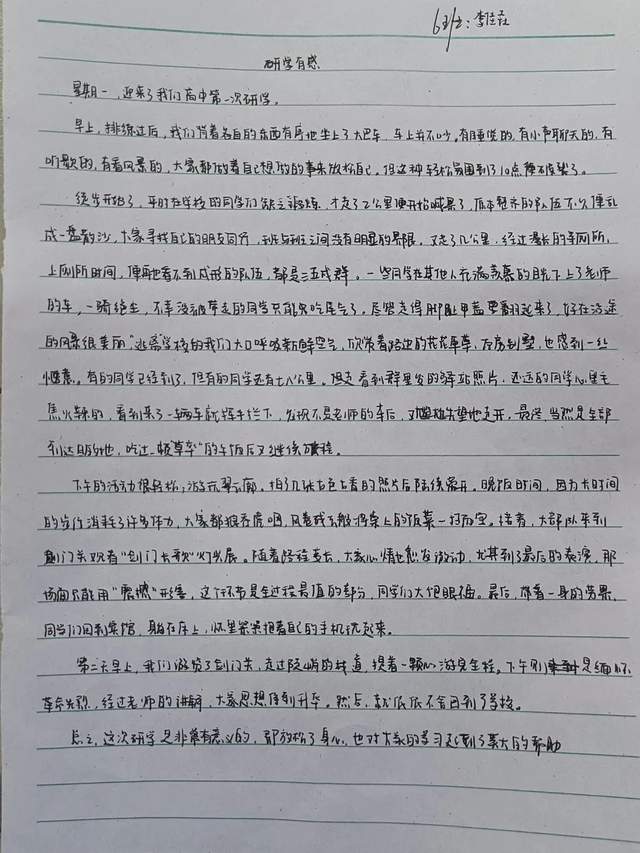 6班:李
研学有感
星期一,迎来了我们高中第一次研学。
早上,排练过后,我们背着各自的东西有序地坐上了大巴车,车上并不吵。有睡觉的,有小声聊天的,有
听歌的,有看风景的,大家都做着自己想做的事来放松自己。但这种轻松氛围到了10点便不复了。
徒步开始了,平时在学校的同学们缺乏训练,才走了2公里便开始喊累了,原本整齐的队伍不久便乱
成一盘散沙,大家寻找自己的朋友同行,班与班之间没有明显的界限。又走了几公里,经过漫长的等厕所、
上厕所时间,便再也看不到成形的队伍,都是三五成群。一些同学在其他人充满羡慕的目光下上了老师
的车,一骑绝尘,不幸没被带走的同学只能吃尾气了。尽管走得脚趾甲盖要翻起来了,好在沿途
的风景很美丽,逃离学校的我们大口呼吸新鲜空气,欣赏着路边的花花草草,房别墅,也感到一丝
惬意。有的同学已经到了,但有的同学还有七八公里。但是看到群里发的驿站照片,还远的同学心里
焦火辣的,看到来了一辆车就挥手拦下,发现不是老师的车后,又失望地走开,最终,当然是全部
到达目的地,吃过一顿“草率”的午饭后又继续旅程。
下午的活动很轻松,游玩翠云廊。拍了几张古色古香的照片后陆续离开。晚饭时间,因为长时间
的步行消耗了许多体力,大家都狼吞虎咽,风卷残云般将桌上的饭菜一扫而空。接着,大部队来到
剑门关观看“剑门长歌”灯光展。随着路程变长,大家心情也愈发激动,尤其到了最后的表演,那
场面只能用“震撼”形容,这个环节是全过程最值的部分,同学们大饱眼福。最后,带着一身的劳累,
同学们回到宾馆,躺在床上,怀里紧紧抱着自己的手机玩起来。
第二天早上,我们游览了剑门关,走过险峭的栈道,摸着一颗心游完全程。下午则是缅怀
革命先烈,经过老师的讲解,大家思想得到升华。然后,就依依不舍回到了学校。
总之,这次研学是非常有意义的,即放松了身心,也对大家的学习起到了莫大的帮助